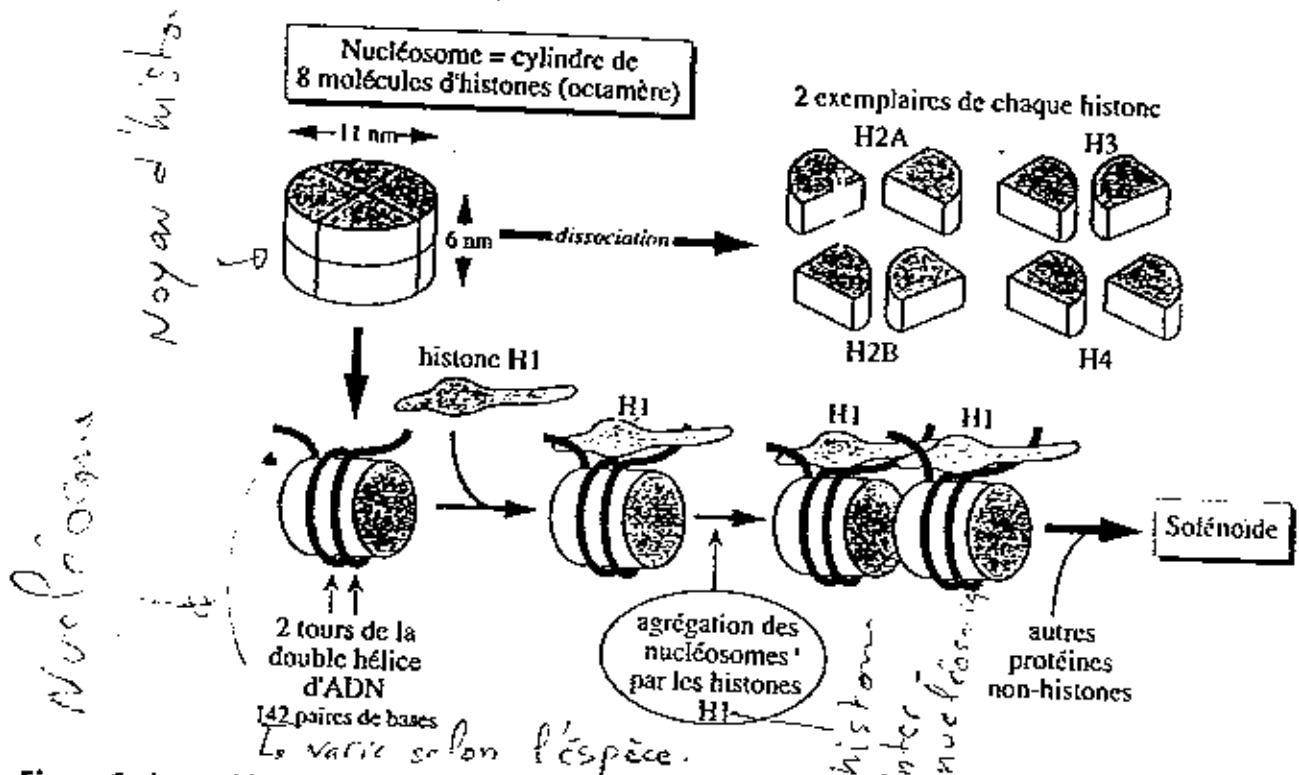 Nucléosome = cylindre de
8 molécules d'histones (octamère)
11 nm
6 nm
dissociation
2 exemplaires de chaque histone
H2A
H3
H2B
H4
Noyau d'histo
histone H1
H1
H1
H1
Nucléosome
2 tours de la
double hélice
d'ADN
142 paires de bases
varie selon l'éspèce.
agrégation des
nucléosomes
par les histones
H1
histon
inter
nucléosomique
autres
protéines
non-histones
Solénoïde